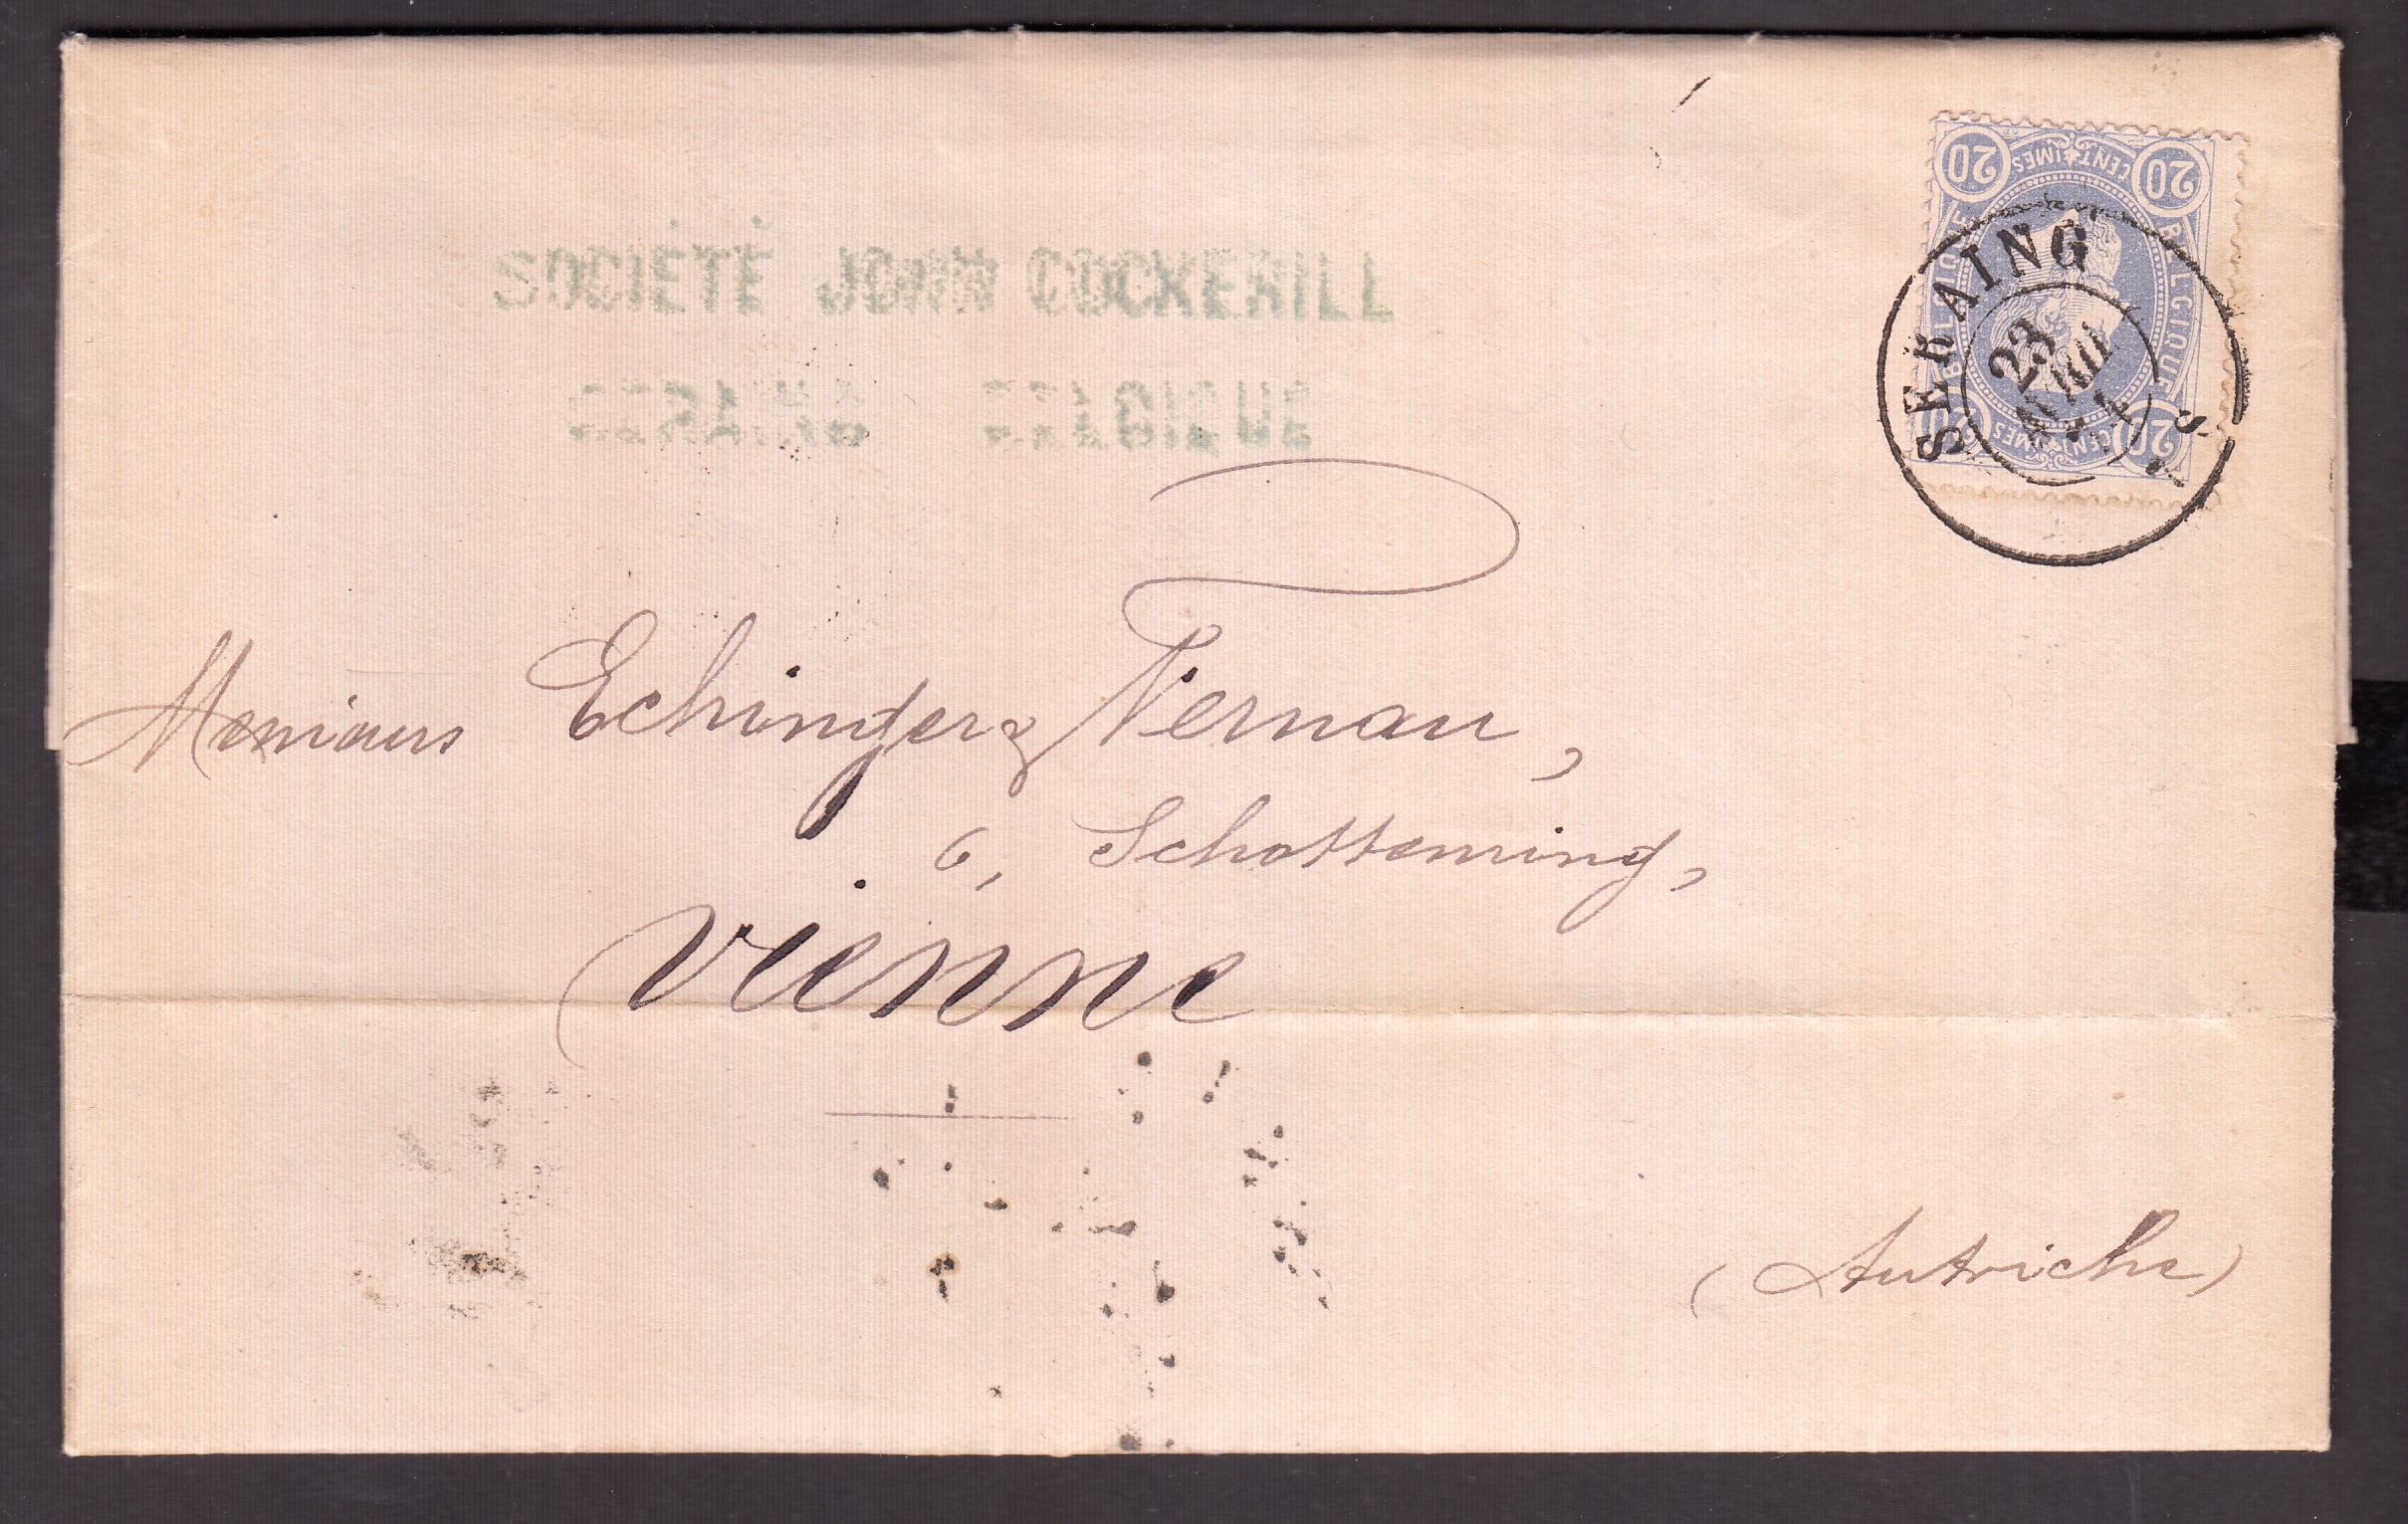 SOCIÉTÉ JOHN COCKERILL
SERAING BELGIQUE
20 CENTIMES 20
BELGIQUE BELGIQUE
20 CENTIMES 20
SERAING
23
Messieurs Echinger & Vernau,
6, Schottenring,
Vienne
(Autriche)